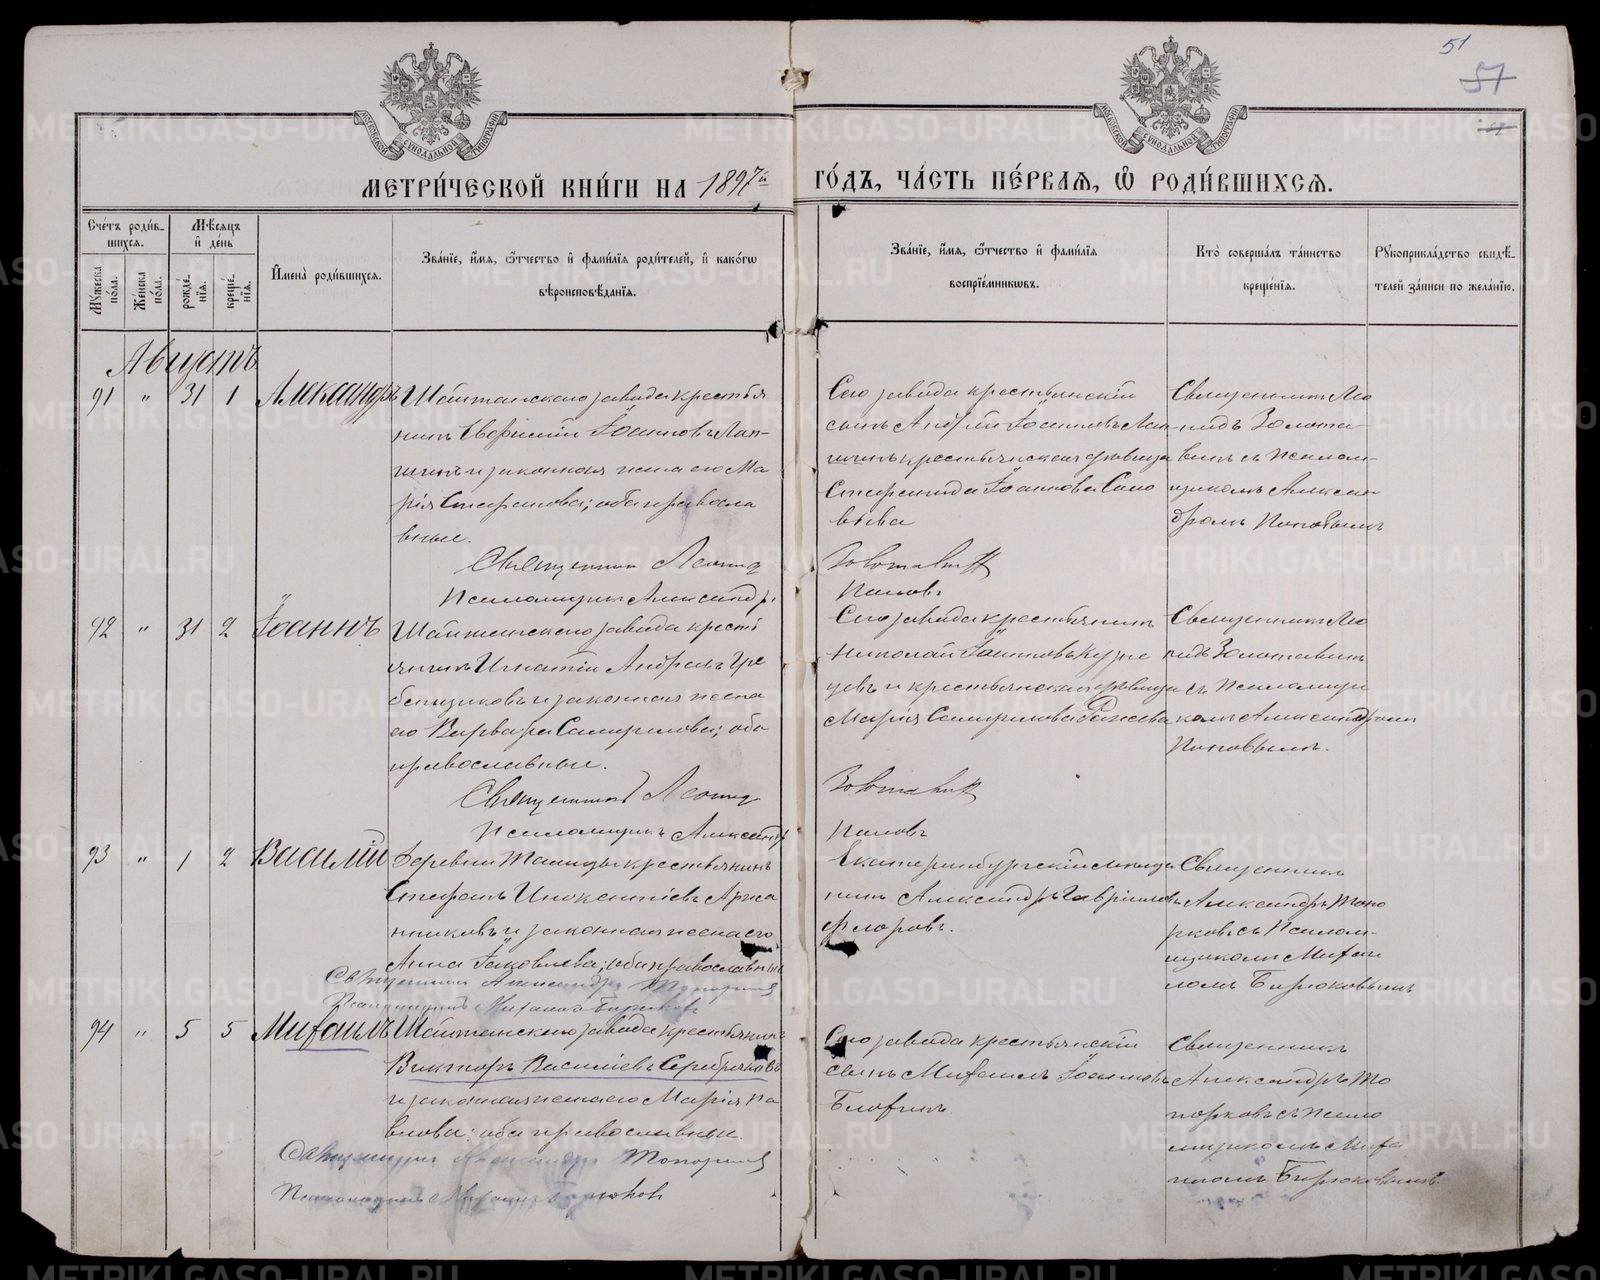 51
57
МЕТРИ́ЧЕСКОЙ КНИ́ГИ НА 1897й ГО́ДЪ, ЧА́СТЬ ПЕ́РВАЯ, Ѽ РОДИ́ВШИХСЯ.
МОСКОВСКОЙ СѴНОДАЛЬНОЙ ТИПОГРАФІИ
МОСКОВСКОЙ СѴНОДАЛЬНОЙ ТИПОГРАФІИ
Сче́тъ роди́в-
шихся.
Мѣ́сяцъ
и́ де́нь
Му́жеска по́ла.
Же́нска по́ла.
рожде́-
нїя.
креще́-
нїя.
И҆мена̀ роди́вшихся.
Зва́нїе, и҆́мя, ѻ҆́тчество и҆ фами́лїя роди́телей, и҆ како́гѡ
вѣроисповѣ́данїя.
Зва́нїе, и҆́мя, ѻ҆́тчество и҆ фами́лїя
воспрїе́мникѡвъ.
Кто̀ соверша́лъ та́инство
креще́нїя.
Рꙋкоприкла́дство свидѣ́-
телей за́писи по жела́нїю.
Августъ
91 " 31 1 Александръ
Шайтанскаго завода крестья
нинъ Евфимій Іоанновъ Лап-
шинъ и законная жена его Ма
рія Стефанова; оба правосла
вные.
Священникъ Леонид
Псаломщикъ Александр
Сего завода крестьянскій
сынъ Андрей Іоанновъ Лап-
шинъ крестьянская дѣвица
Стефанида Іоаннова Соло
вьева
Золотавин
Попов
Священникъ Лео
нидъ Золота
винъ съ псалом-
щикомъ Алексан
дромъ Поповымъ
92 " 31 2 Іоаннъ
Шайтанскаго завода кресть
янинъ Игнатій Андреевъ Гре
бенщиковъ и законная жена
его Варвара Самуилова; оба
православные.
Священникъ Леонид
Псаломщикъ Александр
Сего завода крестьянинъ
Николай Іоанновъ Кузне
цовъ и крестьянская дѣвица
Марія Самуилова
Золотавин
Попов
Священникъ Лео
нидъ Золотавинъ
съ псаломщи
комъ Александромъ
Поповымъ.
93 " 1 2 Василій
Деревни Талицы крестьянинъ
Стефанъ Инокентіевъ
и законная жена его
Анна Іаковлева; оба православные
Священникъ Александръ Топорков
Псаломщикъ Михаилъ Бирюков
Екатеринбургскій мѣща
нинъ Александръ Гавріиловъ
Флоровъ.
Священникъ
Александръ Топо
рковъ съ псалом-
щикомъ Миха
иломъ Бирюковымъ
94 " 5 5 Михаилъ
Шайтанскаго завода крестьянинъ
Викторъ Василіевъ Серебряковъ
и законная жена его Марія Па
влова; оба православные.
Священникъ Александръ Топорков
Псаломщикъ Михаилъ Бирюков
Сего завода крестьянскій
сынъ Михаилъ Іоанновъ
Священникъ
Александръ То
порковъ съ псало
мщикомъ Миха
иломъ Бирюковымъ
METRIKI.GASO-URAL.RU